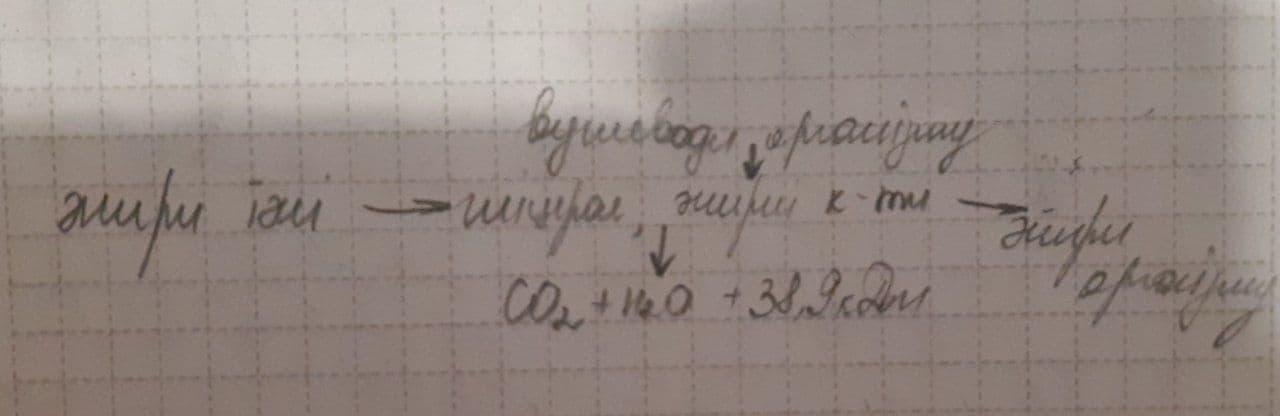 вуглеводи організму
↓
жири їжі → гліцерол, жирні к-ти → жири організму
↓
CO₂ + H₂O + 38,9 кДж